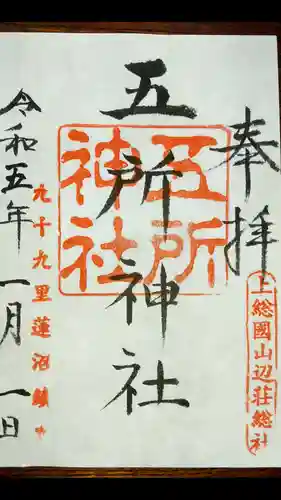 奉拝
上総國山辺荘総社
五所神社
五所神社
九十九里蓮沼鎮守
令和五年一月一日